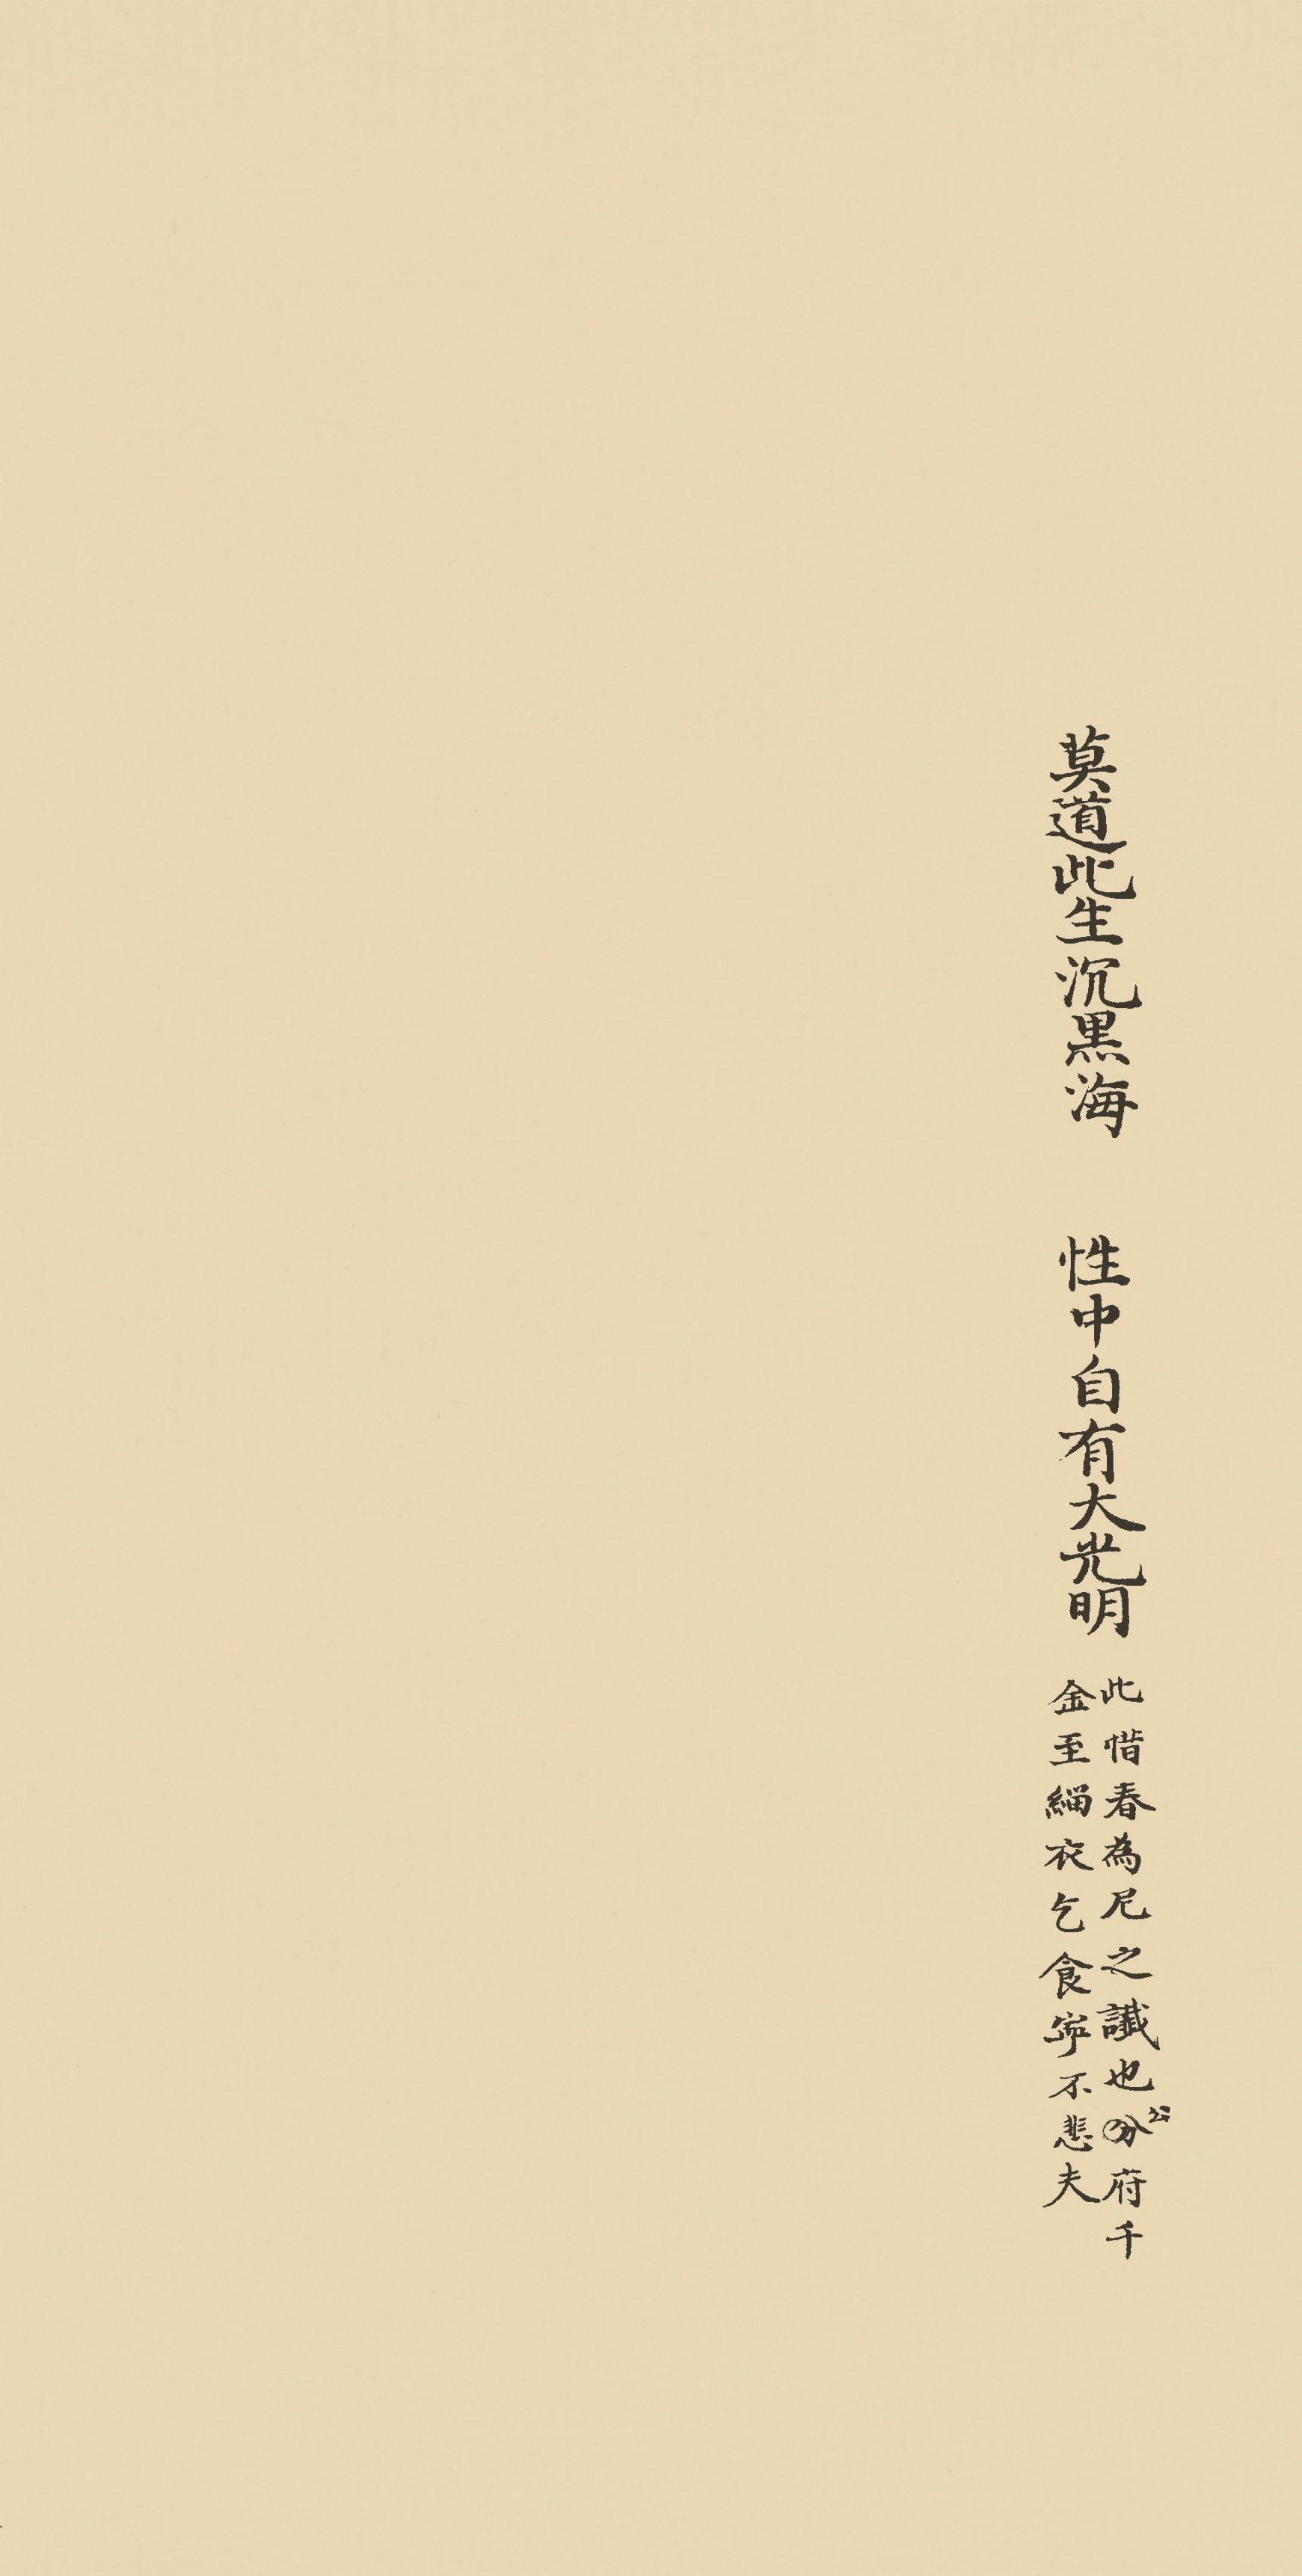 莫道此生沉黑海　性中自有大光明
此惜春為尼之讖也分公府千
金至緇衣乞食寧不悲夫